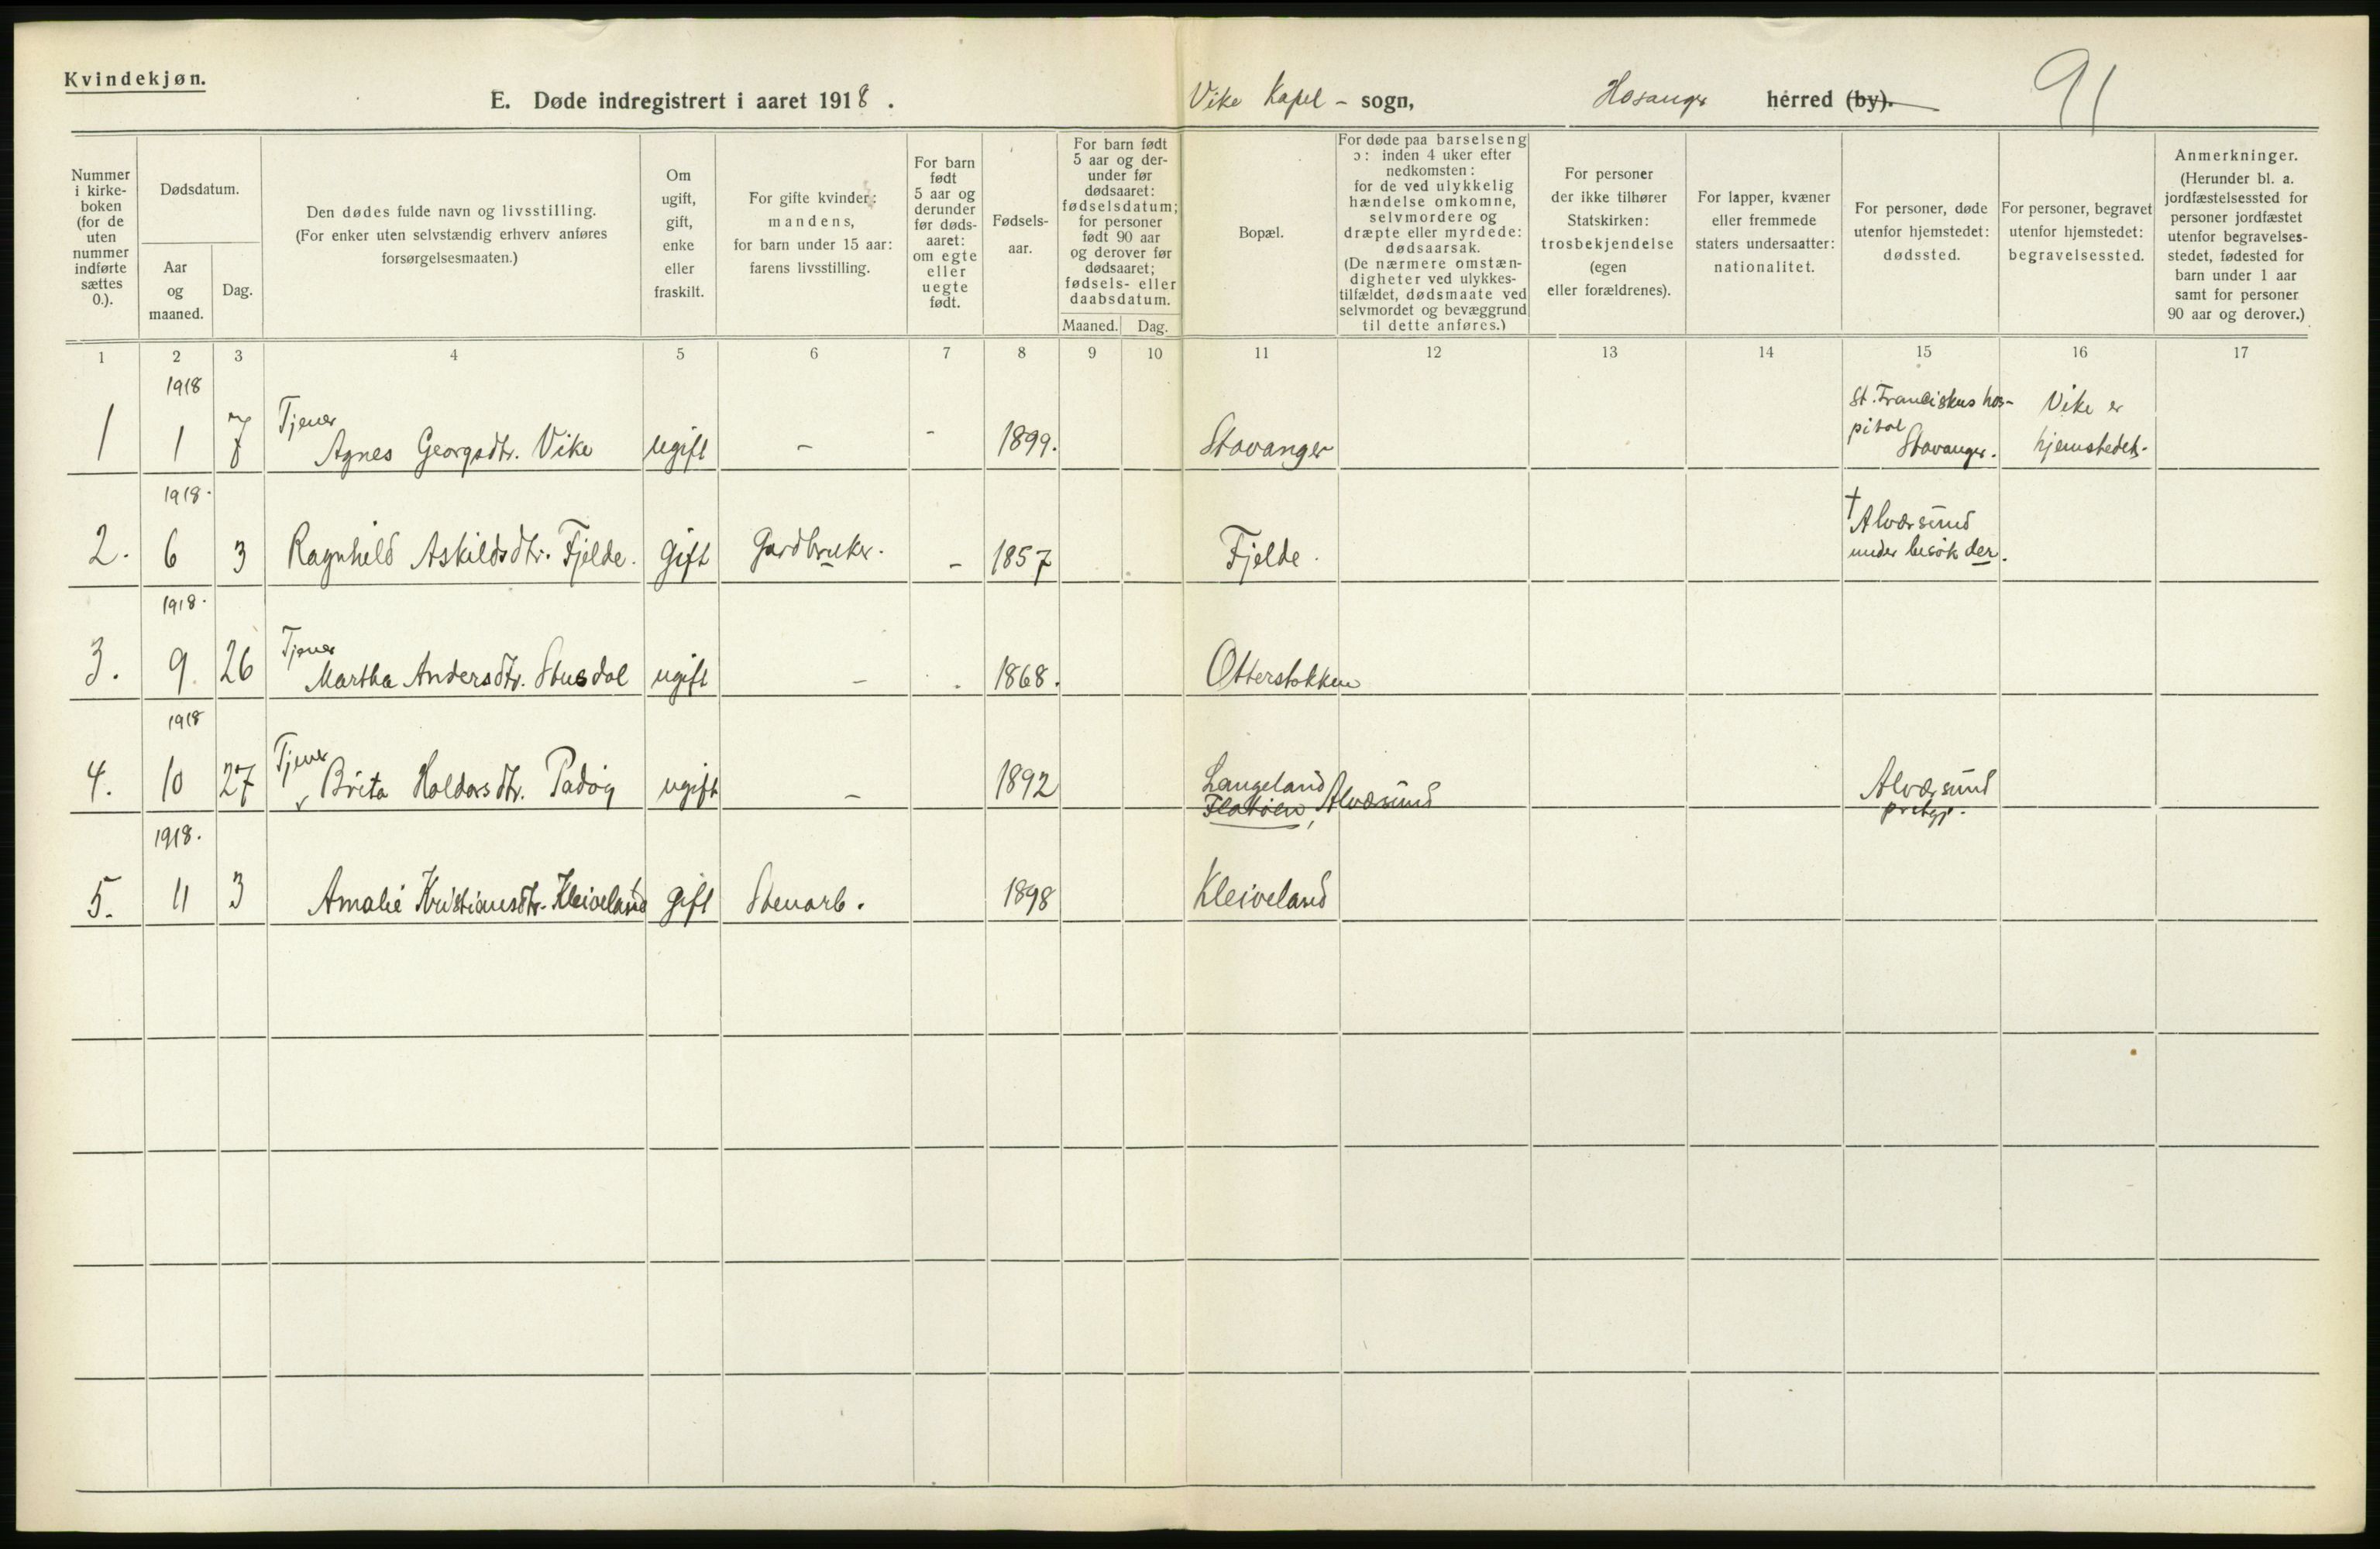 Kvindekjøn.
E. Døde indregistrert i aaret 1918.
Vike Kapel - sogn, Hosanger herred (by).
91
Nummer
i kirke-
boken
(for de
uten
nummer
indførte
sættes
0.).
Dødsdatum.
Aar
og
maaned.
Dag.
Den dødes fulde navn og livsstilling.
(For enker uten selvstændig erhverv anføres
forsørgelsesmaaten.)
Om
ugift,
gift,
enke
eller
fraskilt.
For gifte kvinder:
mandens,
for barn under 15 aar:
farens livsstilling.
For barn
født
5 aar og
derunder
før døds-
aaret:
om egte
eller
uegte
født.
Fødsels-
aar.
For barn født
5 aar og der-
under før
dødsaaret:
fødselsdatum;
for personer
født 90 aar
og derover før
dødsaaret;
fødsels- eller
daabsdatum.
Maaned. Dag.
Bopæl.
For døde paa barselseng
ɔ: inden 4 uker efter
nedkomsten:
for de ved ulykkelig
hændelse omkomne,
selvmordere og
dræpte eller myrdede:
dødsaarsak.
(De nærmere omstæn-
digheter ved ulykkes-
tilfældet, dødsmaate ved
selvmordet og bevæggrund
til dette anføres.)
For personer
der ikke tilhører
Statskirken:
trosbekjendelse
(egen
eller forældrenes).
For lapper, kvæner
eller fremmede
staters undersaatter:
nationalitet.
For personer, døde
utenfor hjemstedet:
dødssted.
For personer, begravet
utenfor hjemstedet:
begravelsessted.
Anmerkninger.
(Herunder bl. a.
jordfæstelsessted for
personer jordfæstet
utenfor begravelses-
stedet, fødested for
barn under 1 aar
samt for personer
90 aar og derover.)
1 2 3 4 5 6 7 8 9 10 11 12 13 14 15 16 17
1918
Tjener
St. Franciskus hos-
pital
Vike er
1 1 7 Agnes Georgsdtr. Vike ugift - - 1899. Stavanger Stavanger. hjemstedet.
1918.
† Alværsund
2. 6 3 Ragnhild Askildsdtr. Fjelde. gift Gardbruker. - 1857 Fjelde. under besøk der.
1918.
Tjener
3. 9. 26 Martha Andersdtr. Stusdal ugift - . 1868. Otterstokken
1918
Tjener
Langeland
4. 10 27 Brita Haldorsdtr. Padøy ugift - 1892 Flatøen, Alværsund Alværsund
prstgj.
1918.
5. 11 3 Amalie Kristiansdtr. Kleiveland gift Stenarb. 1898 Kleiveland